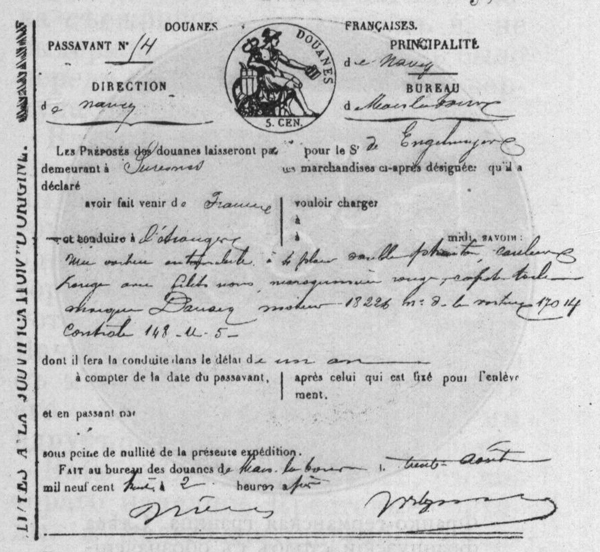 DOUANES FRANÇAISES.
PASSAVANT N° 14
PRINCIPALITÉ
de Nancy
DIRECTION
de Nancy
BUREAU
DOUANES
5. CEN.
LES PRÉPOSÉS des douanes laisseront pour le Sr de Engelmeyer
demeurant à Suresnes marchandises ci-après désignées qu'il a
déclaré
avoir fait venir de France vouloir charger
à
et conduire à l'étranger à midi. SAVOIR :
Une voiture automobile à 4 places double phaéton, couleur
rouge avec filets noirs, maroquinerie rouge, capote toile
marque Darracq moteur 18226 no de la voiture 17014
Contrôle 148-U-5-
dont il fera la conduite dans le délai de un an
à compter de la date du passavant, après celui qui est fixé pour l'enlève
ment.
et en passant par
sous peine de nullité de la présente expédition.
FAIT au bureau des douanes de trente août
mil neuf cent huit à 2 heures après